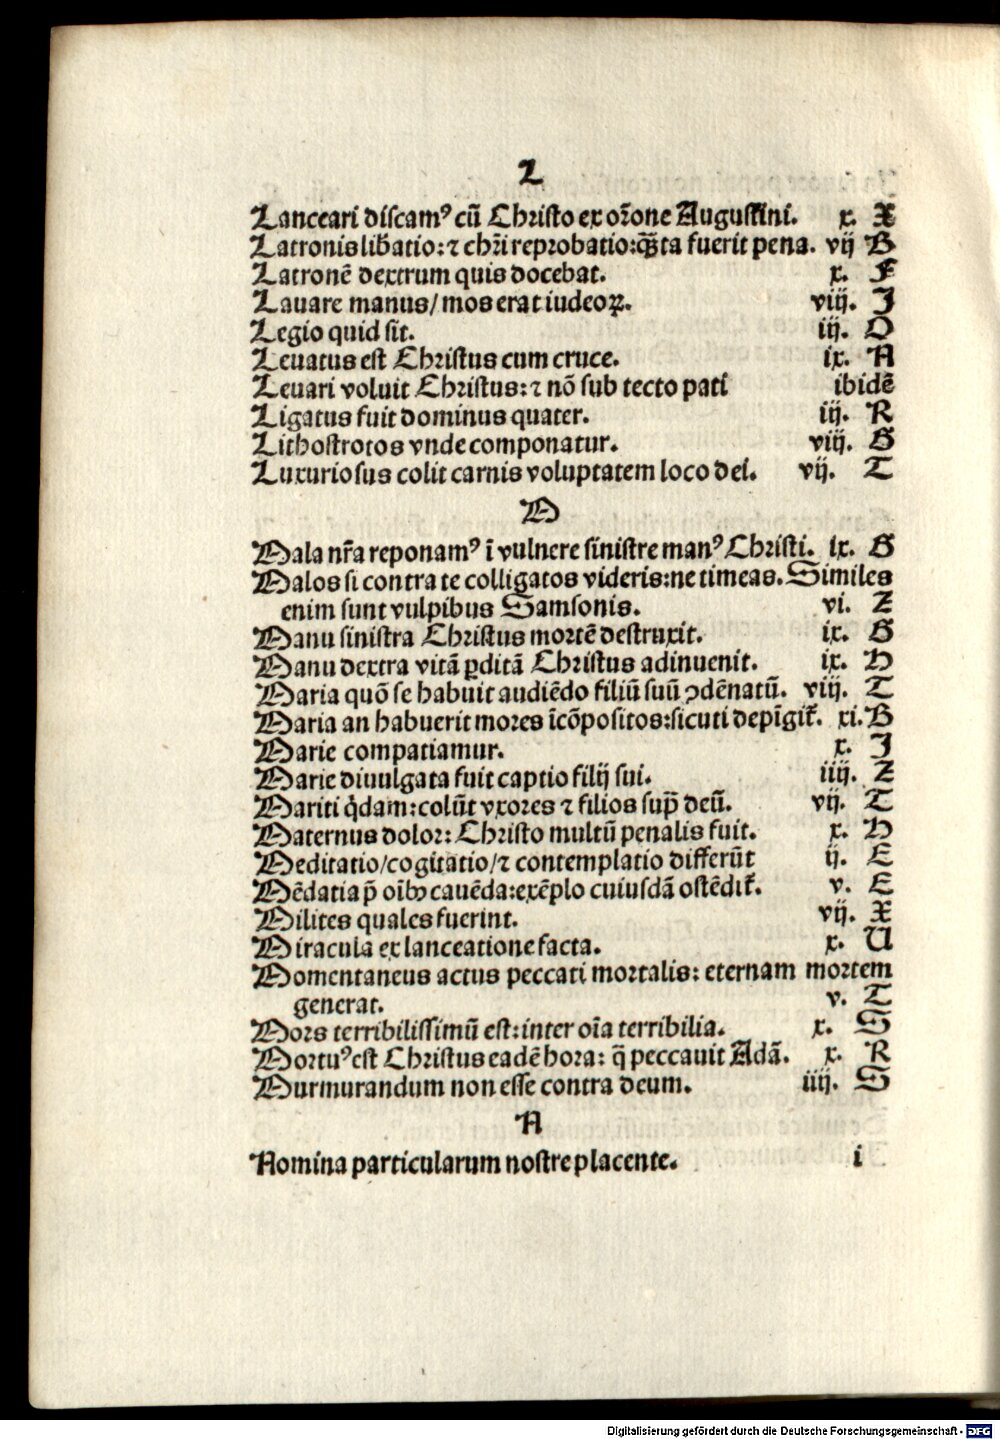 L
Lanceari discamꝰ cū Christo ex orõne Augustini. x. X
Latronis libatio: ⁊ chri reprobatio: qz̃ta fuerit pena. vij B
Latronē dextrum quis docebat. x. F
Lauare manus/ mos erat iudeoꝝ. viij. J
Legio quid sit. iij. O
Leuatus est Christus cum cruce. ix. A
Leuari voluit Christus: ⁊ nō sub tecto pati ibidē
Ligatus fuit dominus quater. iij. R
Lithostrotos vnde componatur. viij. G
Luxuriosus colit carnis voluptatem loco dei. vij. T
M
Mala nr̄a reponamꝰ ī vulnere sinistre manꝰ Christi. ix. G
Malos si contra te colligatos videris: ne timeas. Similes
enim sunt vulpibus Samsonis. vi. Z
Manu sinistra Christus mortē destruxit. ix. G
Manu dextra vitā ꝑditā Christus adinuenit. ix. H
Maria quō se habuit audiēdo filiū suū ꝯdēnatū. viij. T
Maria an habuerit mores īcōpositos: sicuti depīgit̄. xi. B
Marie compatiamur. x. J
Marie diuulgata fuit captio filij sui. iiij. Z
Mariti q̇dam: colūt vxores ⁊ filios sup̄ deū. vij. T
Maternus dolor: Christo multū penalis fuit. x. H
Meditatio/cogitatio/⁊ contemplatio differūt ij. E
Mēdatia p̄ oībꝫ cauēda: exēplo cuiusdā ostēdit̄. v. E
Milites quales fuerint. vij. X
Miracula ex lanceatione facta. x. U
Momentaneus actus peccati mortalis: eternam mortem
generat. v. T
Mors terribilissimū est: inter oīa terribilia. x. S
Mortuꝰ est Christus eadē hora: q̄ peccauit Adā. x. R
Murmurandum non esse contra deum. iiij. S
N
Nomina particularum nostre placente. i
Digitalisierung gefördert durch die Deutsche Forschungsgemeinschaft - DFG